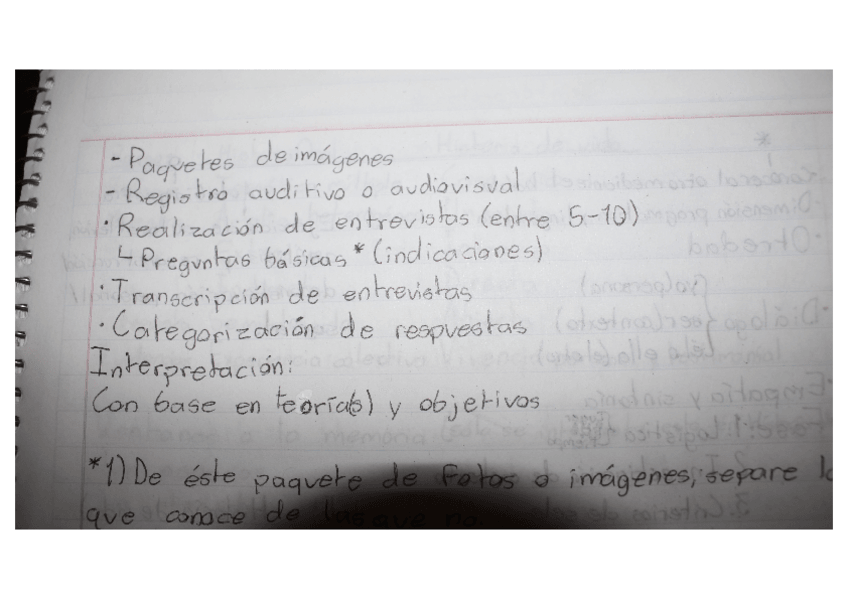 - Paquetes de imágenes
- Registro auditivo o audiovisual
· Realización de entrevistas (entre 5-10)
↳ Preguntas básicas * (indicaciones)
· Transcripción de entrevistas
· Categorización de respuestas
Interpretación:
Con base en teoría(s) y objetivos
*1) De éste paquete de fotos o imágenes, separe
que conoce de las que no